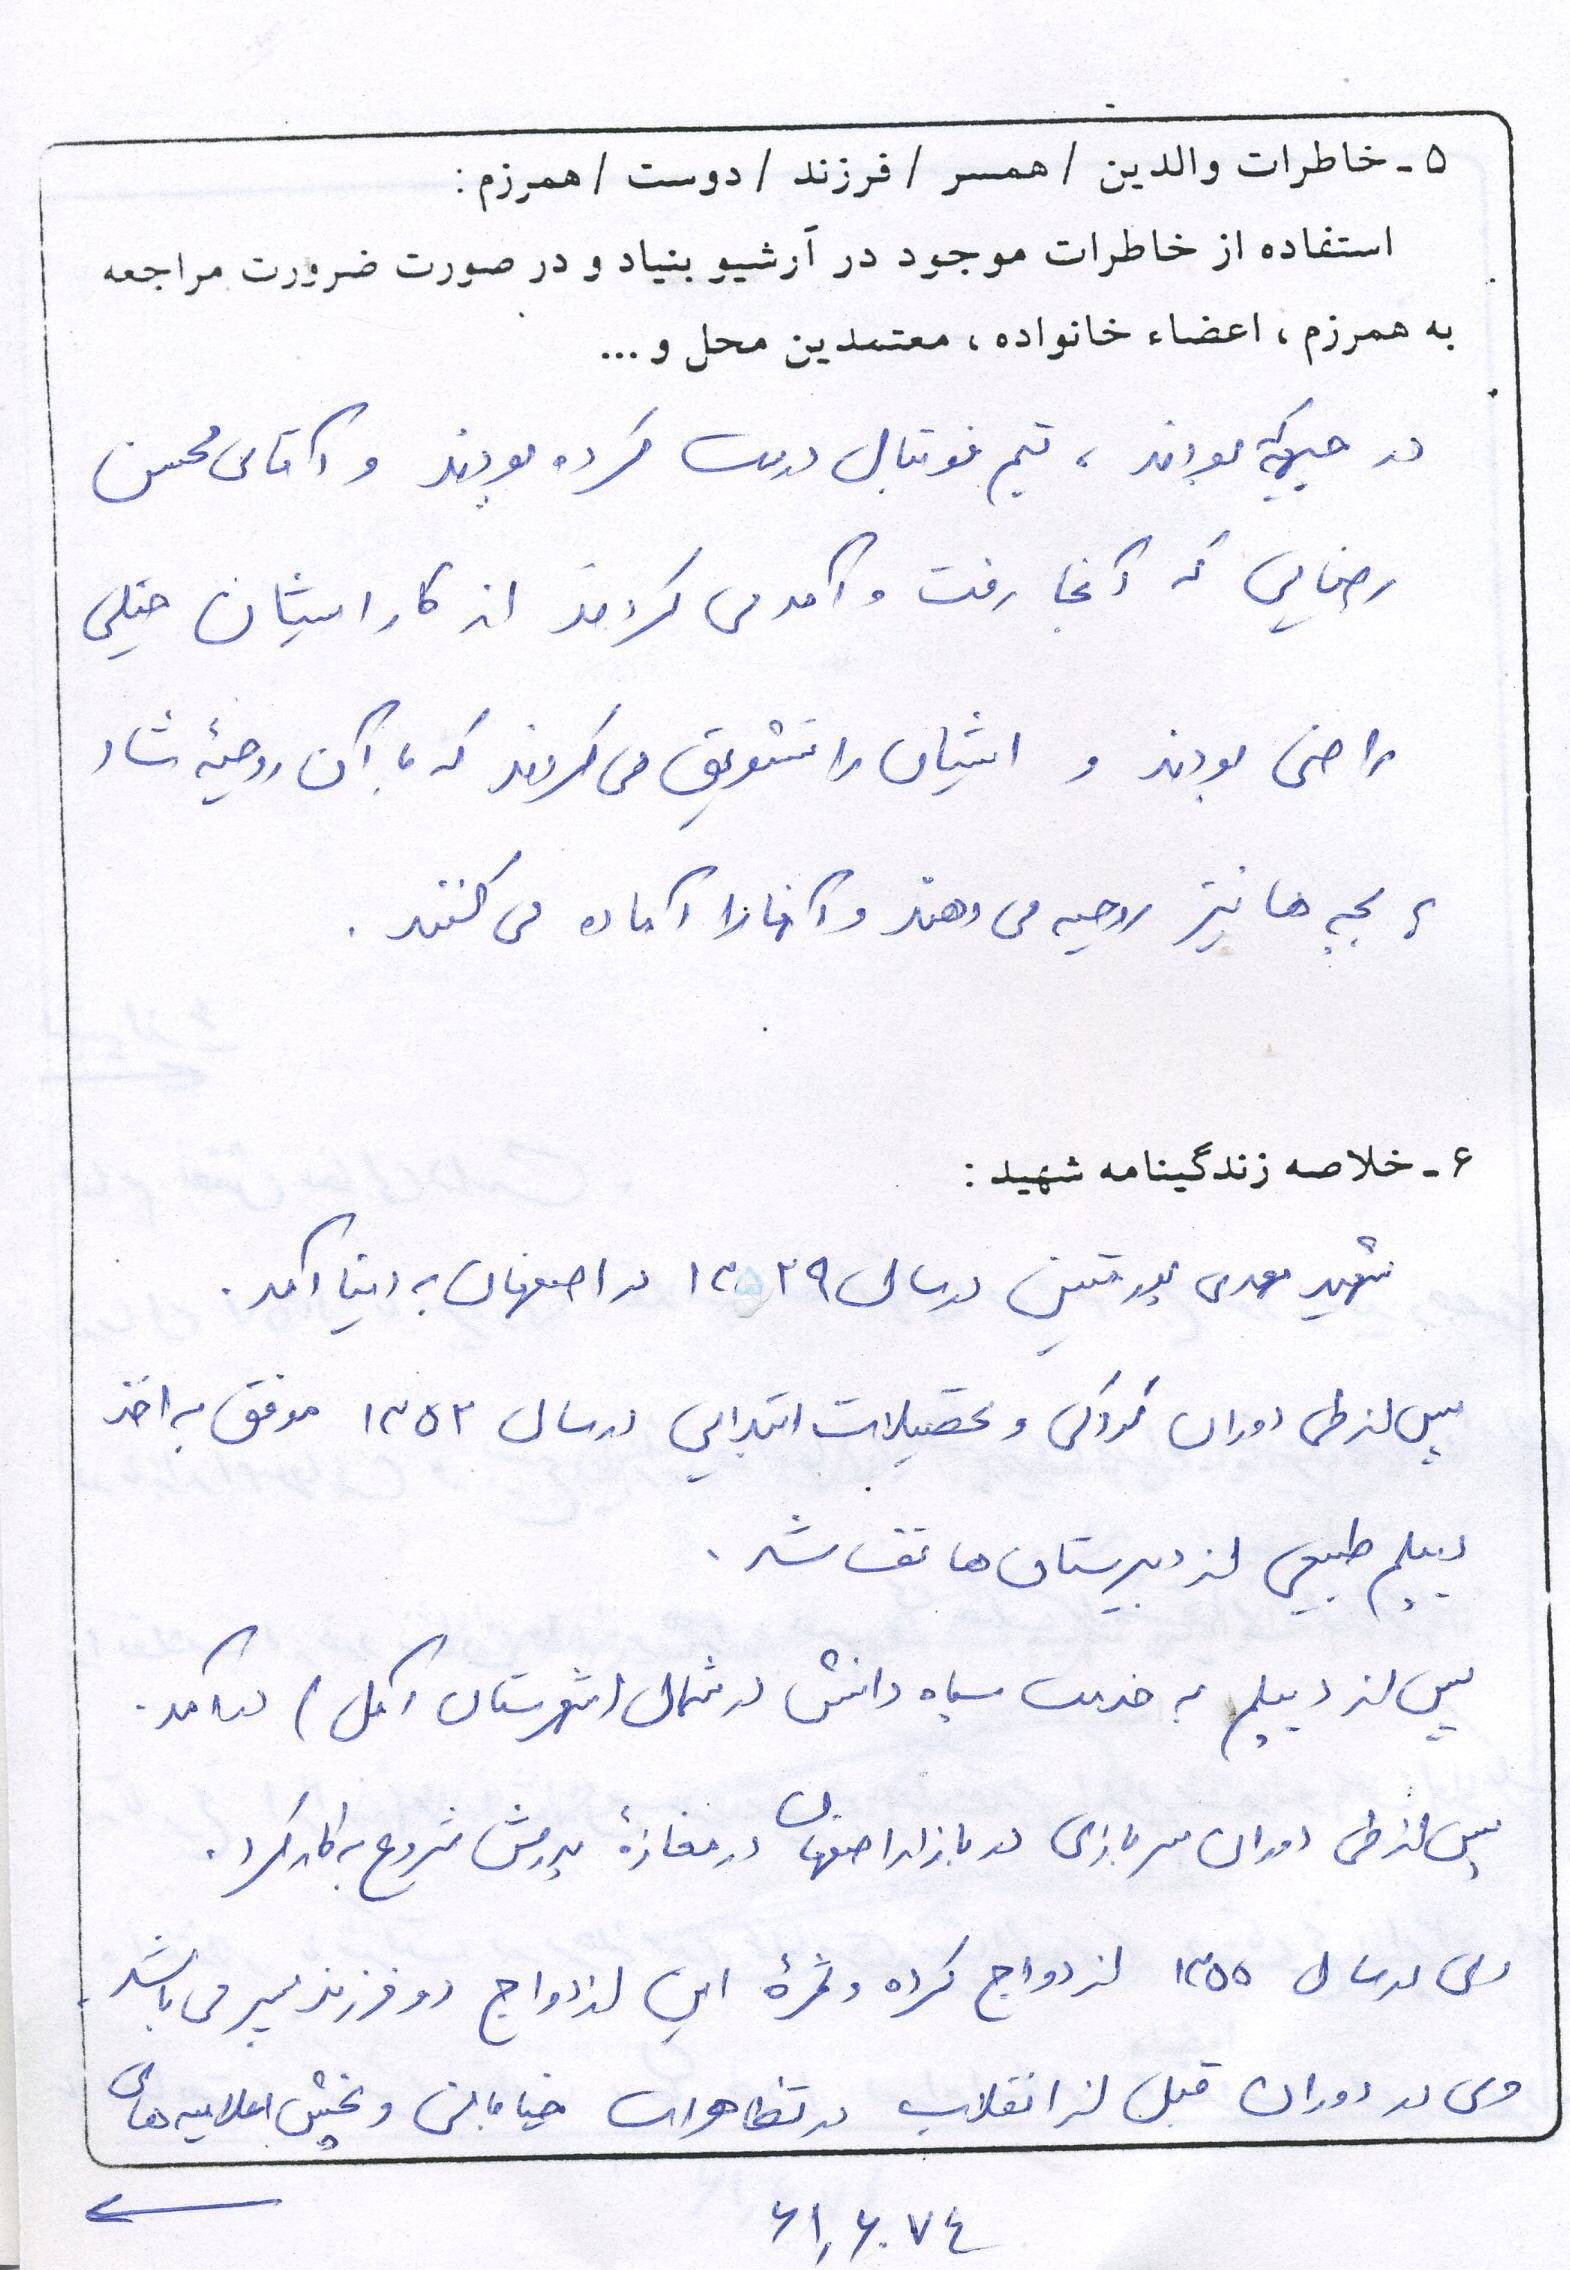 ۵ - خاطرات والدین / همسر / فرزند / دوست / همرزم :
استفاده از خاطرات موجود در آرشیو بنیاد و در صورت ضرورت مراجعه
به همرزم ، اعضاء خانواده ، معتمدین محل و ...
در جبهه بودند ، تیم فوتبال درست کرده بودند و آقای محسن
رضایی که آنجا رفت و آمد می کردند از کار ایشان خیلی
راضی بودند و ایشان را تشویق می کردند که با آن روحیهٔ شاد
به بچه ها نیز روحیه می دهند و آنها را آماده می کنند .
۶ - خلاصه زندگینامه شهید :
شهید مهدی پورمتین در سال ۱۳۲۹ در اصفهان به دنیا آمد .
پس از طی دوران کودکی و تحصیلات ابتدایی در سال ۱۳۵۲ موفق به اخذ
دیپلم طبیعی از دبیرستان هاتف شد .
پس از دیپلم به خدمت سپاه دانش در شمال (شهرستان آمل) درآمد .
پس از طی دوران سربازی در بازار اصفهان در مغازهٔ پدرش شروع به کار کرد .
وی در سال ۱۳۵۵ ازدواج کرده و ثمرهٔ این ازدواج دو فرزند پسر می باشد .
وی در دوران قبل از انقلاب در تظاهرات خیابانی و پخش اعلامیه های
۶۱۰۶۰۷۴